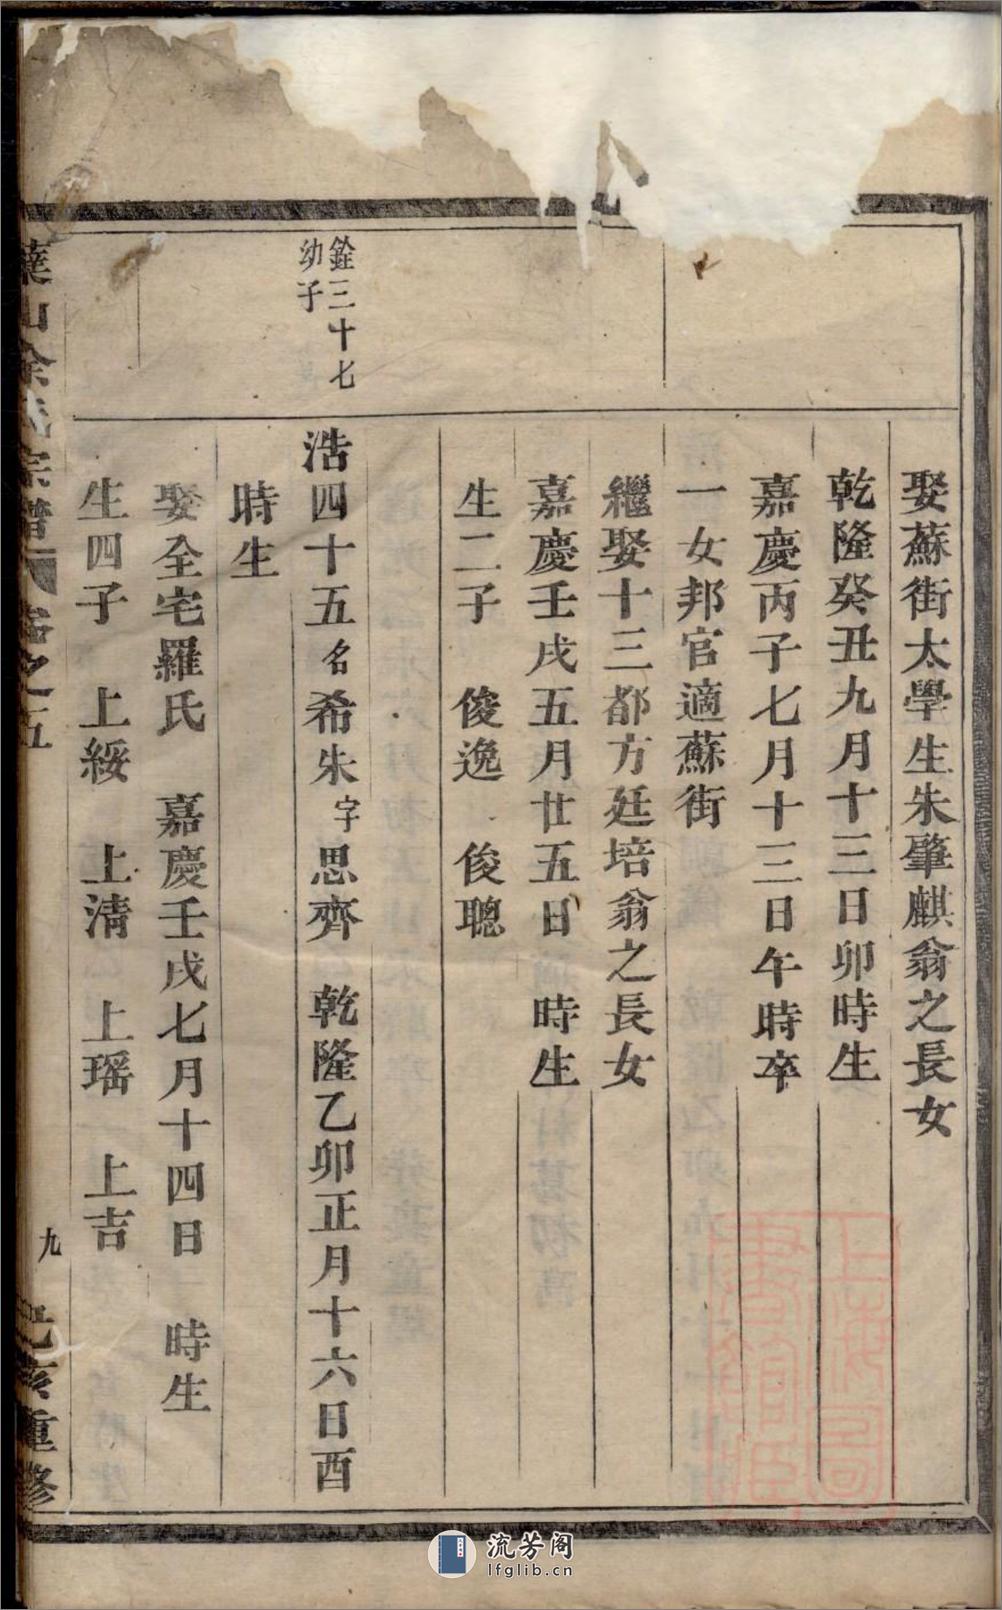 娶蘇街太學生朱肇麒翁之長女
乾隆癸丑九月十三日卯時生
嘉慶丙子七月十三日午時卒
一女邦官適蘇街
繼娶十三都方廷培翁之長女
嘉慶壬戌五月廿五日　時生
生二子　俊逸　俊聰
銓三十七
幼子
浩四十五名希朱字思齊　乾隆乙卯正月十六日酉
時生
娶全宅羅氏　嘉慶壬戌七月十四日　時生
生四子　上綏　上清　上瑶　上吉
山余氏宗譜　卷之五　九　重修
上海圖書館藏
流芳阁
lfglib.cn